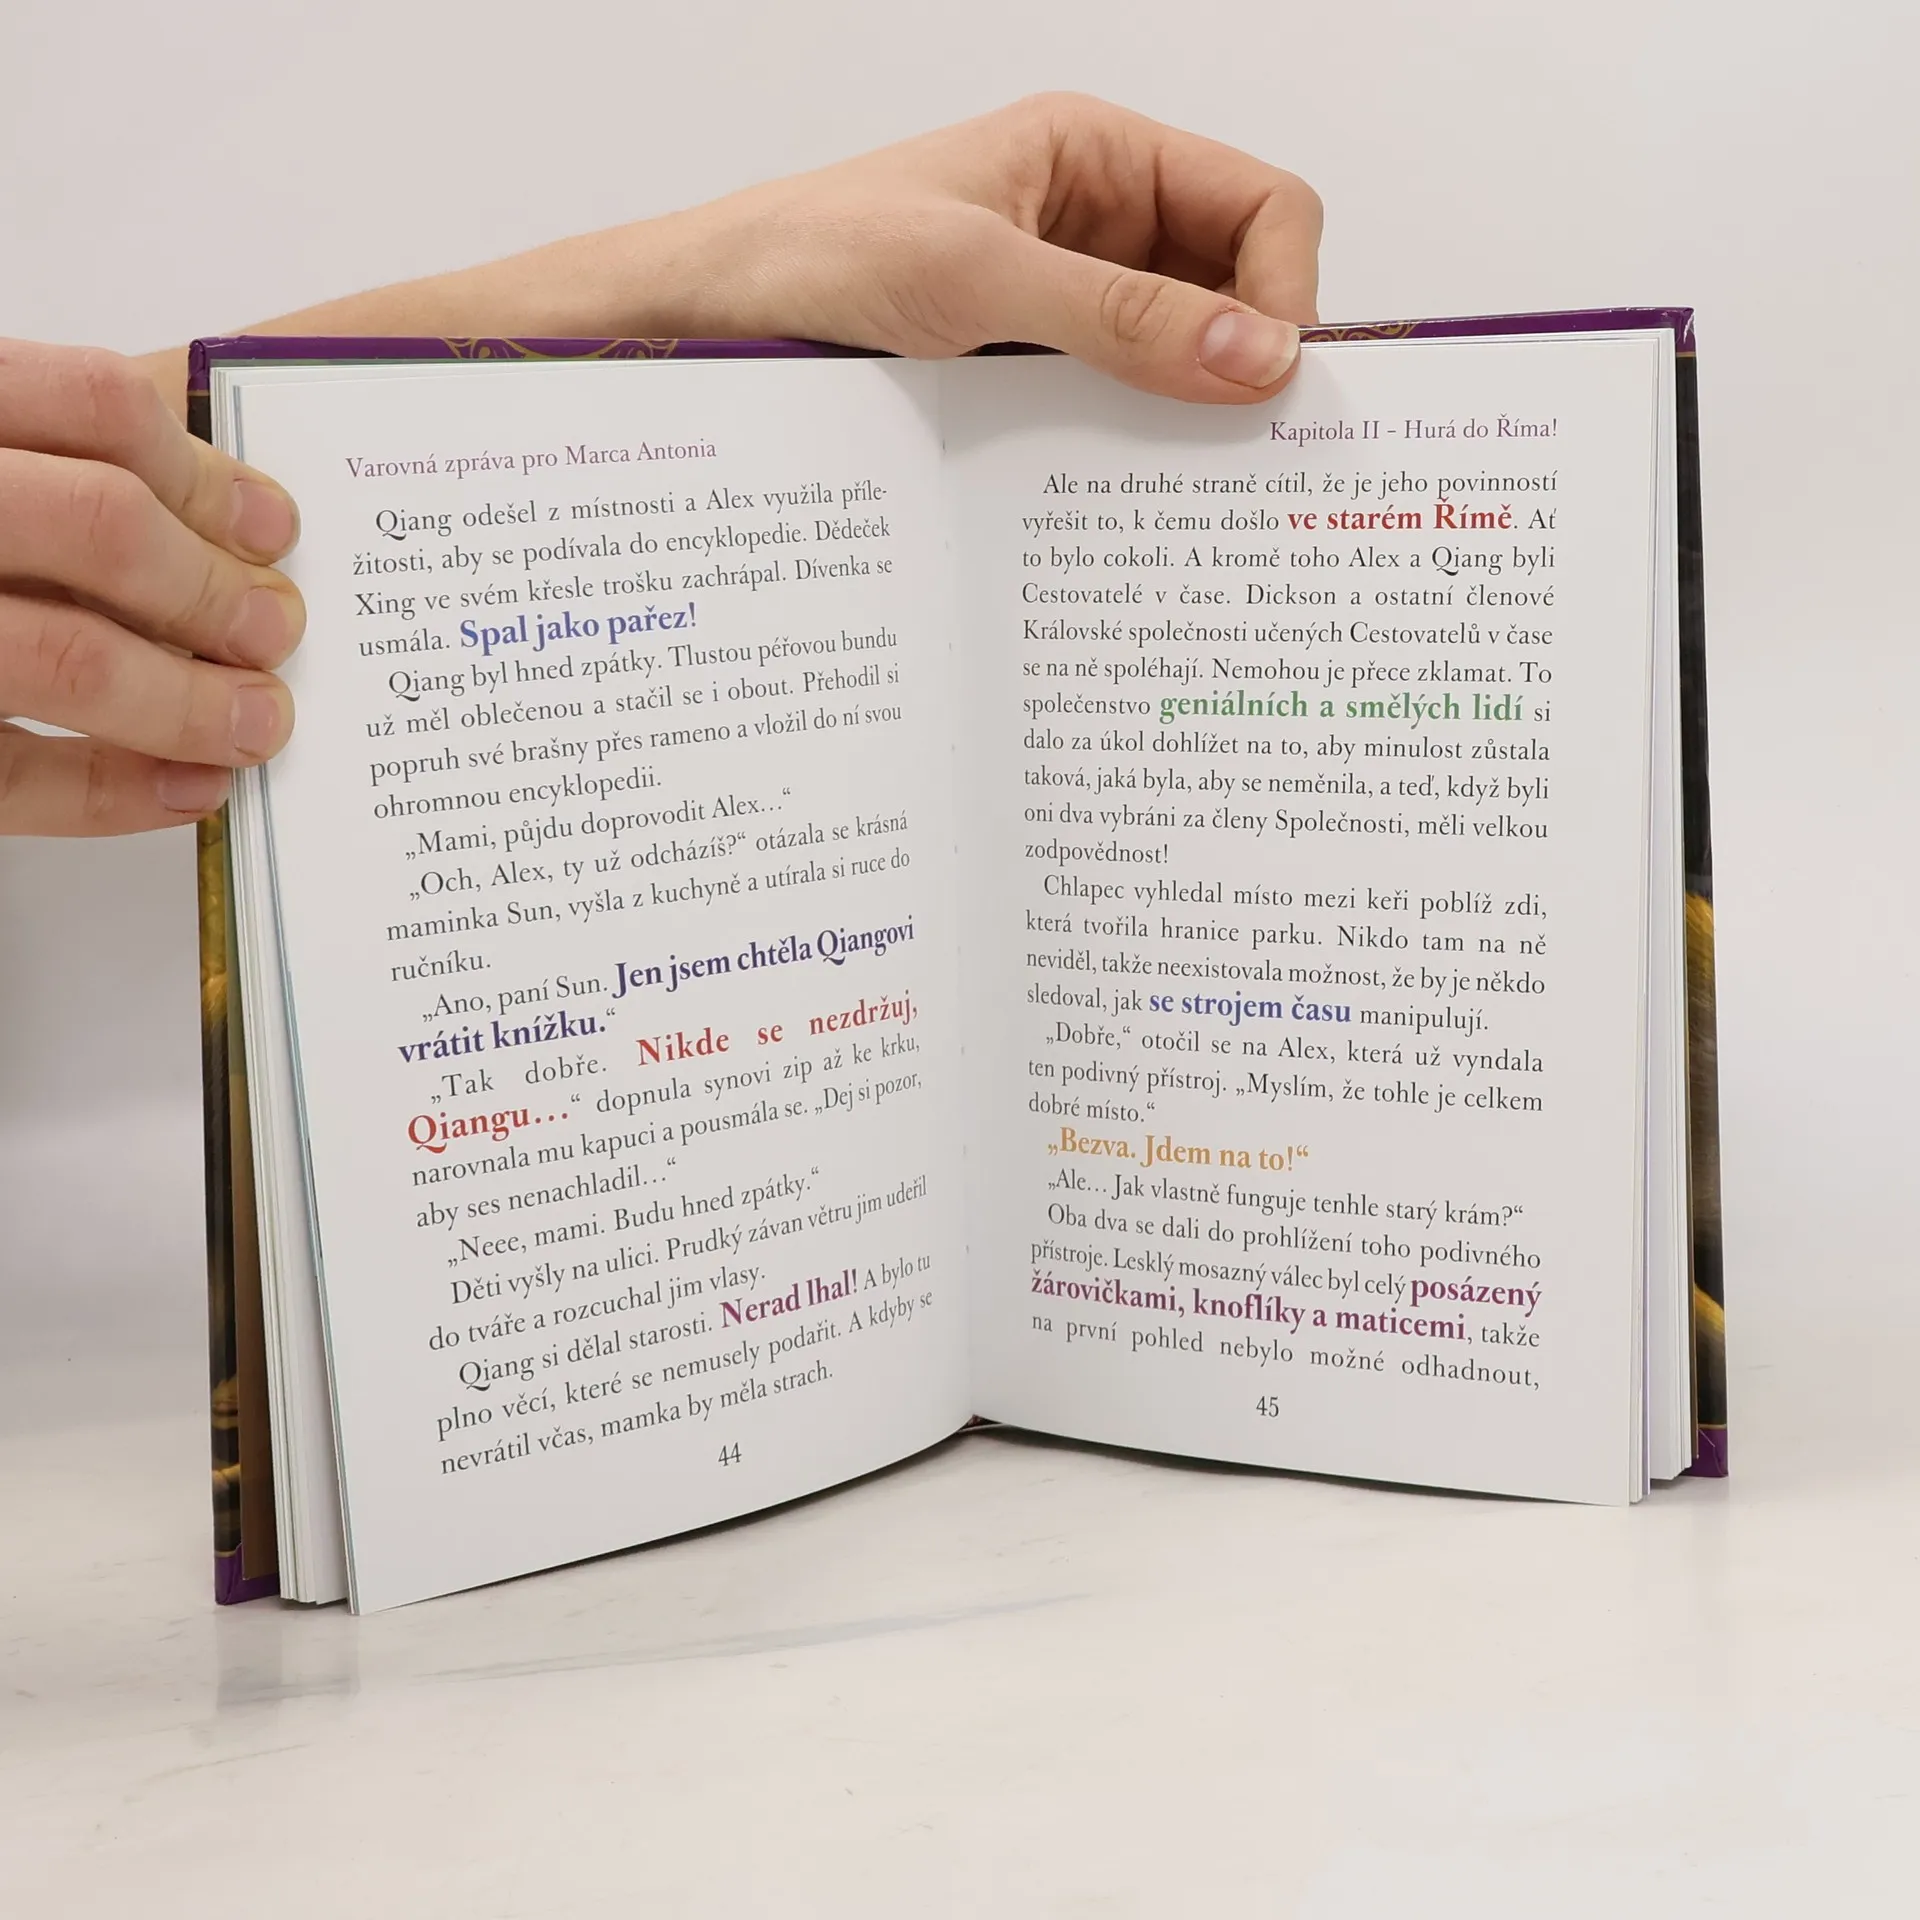 Varovná zpráva pro Marca Antonia
Qiang odešel z místnosti a Alex využila příle-
žitosti, aby se podívala do encyklopedie. Dědeček
Xing ve svém křesle trošku zachrápal. Dívenka se
usmála. Spal jako pařez!
Qiang byl hned zpátky. Tlustou péřovou bundu
už měl oblečenou a stačil se i obout. Přehodil si
popruh své brašny přes rameno a vložil do ní svou
ohromnou encyklopedii.
„Mami, půjdu doprovodit Alex…“
„Och, Alex, ty už odcházíš?“ otázala se krásná
maminka Sun, vyšla z kuchyně a utírala si ruce do
ručníku.
„Ano, paní Sun. Jen jsem chtěla Qiangovi
vrátit knížku.“
„Tak dobře. Nikde se nezdržuj,
Qiangu…“ dopnula synovi zip až ke krku,
narovnala mu kapuci a pousmála se. „Dej si pozor,
aby ses nenachladil…“
„Neee, mami. Budu hned zpátky.“
Děti vyšly na ulici. Prudký závan větru jim udeřil
do tváře a rozcuchal jim vlasy.
Qiang si dělal starosti. Nerad lhal! A bylo tu
plno věcí, které se nemusely podařit. A kdyby se
nevrátil včas, mamka by měla strach.
44
Kapitola II – Hurá do Říma!
Ale na druhé straně cítil, že je jeho povinností
vyřešit to, k čemu došlo ve starém Římě. Ať
to bylo cokoli. A kromě toho Alex a Qiang byli
Cestovatelé v čase. Dickson a ostatní členové
Královské společnosti učených Cestovatelů v čase
se na ně spoléhají. Nemohou je přece zklamat. To
společenstvo geniálních a smělých lidí si
dalo za úkol dohlížet na to, aby minulost zůstala
taková, jaká byla, aby se neměnila, a teď, když byli
oni dva vybráni za členy Společnosti, měli velkou
zodpovědnost!
Chlapec vyhledal místo mezi keři poblíž zdi,
která tvořila hranice parku. Nikdo tam na ně
neviděl, takže neexistovala možnost, že by je někdo
sledoval, jak se strojem času manipulují.
„Dobře,“ otočil se na Alex, která už vyndala
ten podivný přístroj. „Myslím, že tohle je celkem
dobré místo.“
„Bezva. Jdem na to!“
„Ale… Jak vlastně funguje tenhle starý krám?“
Oba dva se dali do prohlížení toho podivného
přístroje. Lesklý mosazný válec byl celý posázený
žárovičkami, knoflíky a maticemi, takže
na první pohled nebylo možné odhadnout,
45